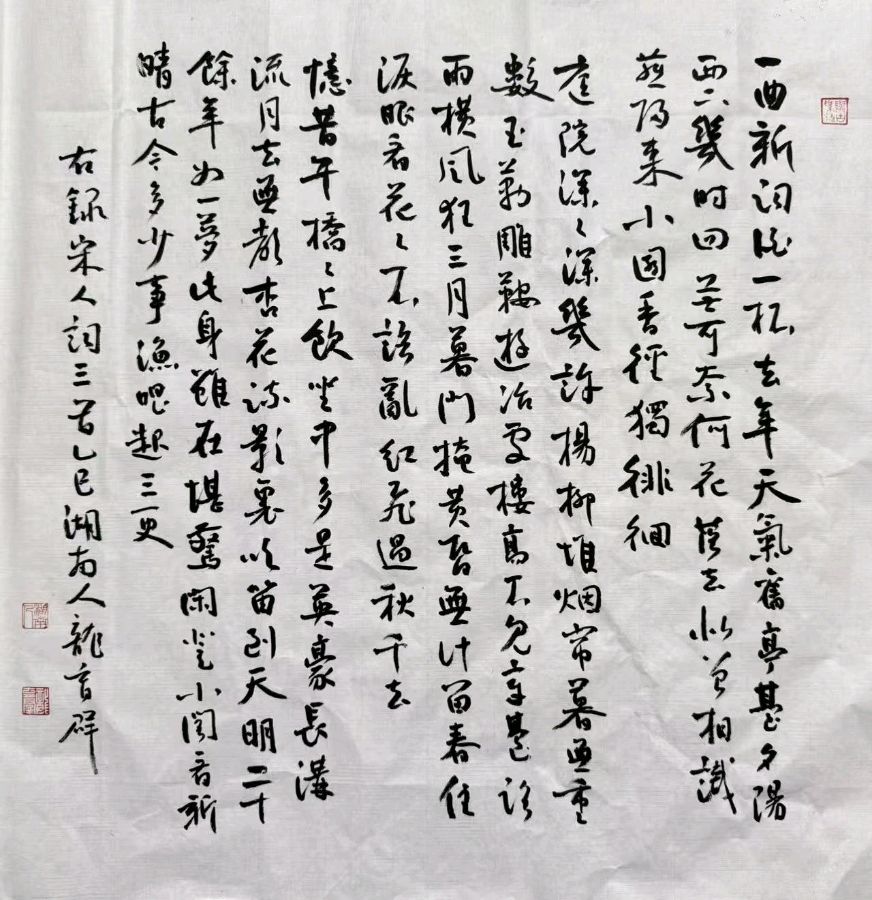 一曲新詞酒一杯去年天氣舊亭臺夕陽
西下幾時回無可奈何花落去似曾相識
燕歸來小園香徑獨徘徊
庭院深々深幾許楊柳堆烟簾幕無重
數玉勒雕鞍遊冶處樓高不見章臺路
雨橫風狂三月暮門掩黃昏無計留春住
淚眼看花々不語亂紅飛過秋千去
憶昔午橋々上飲坐中多是英豪長溝
流月去無聲杏花疏影裏吹笛到天明二十
餘年如一夢此身雖在堪驚閑登小閣看新
晴古今多少事漁唱起三更
右録宋人詞三首乙巳湖南人龍育群